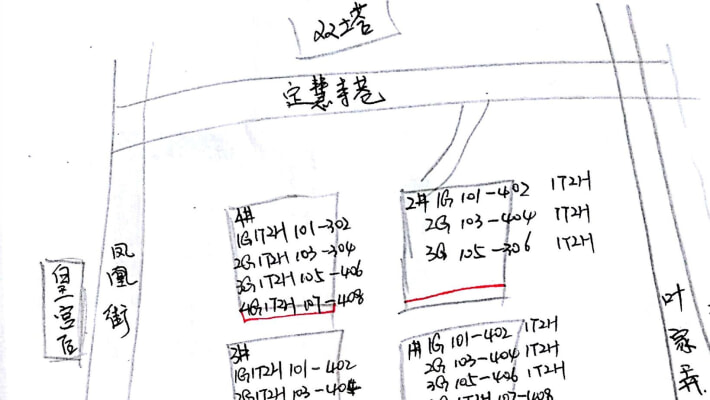 双塔
定慧寺巷
4#
1G 1T2H 101-302
2G 1T2H 103-304
3G 1T2H 105-406
4G 1T2H 107-408
2# 1G 101-402 1T2H
2G 103-404 1T2H
3G 105-306 1T2H
凤凰街
皇宫后
叶家弄
3#
1G 1T2H 101-402
2G 1T2H 103-404
1# 1G 101-402 1T2H
2G 103-404 1T2H
3G 105-406 1T2H
1T2H 107-408